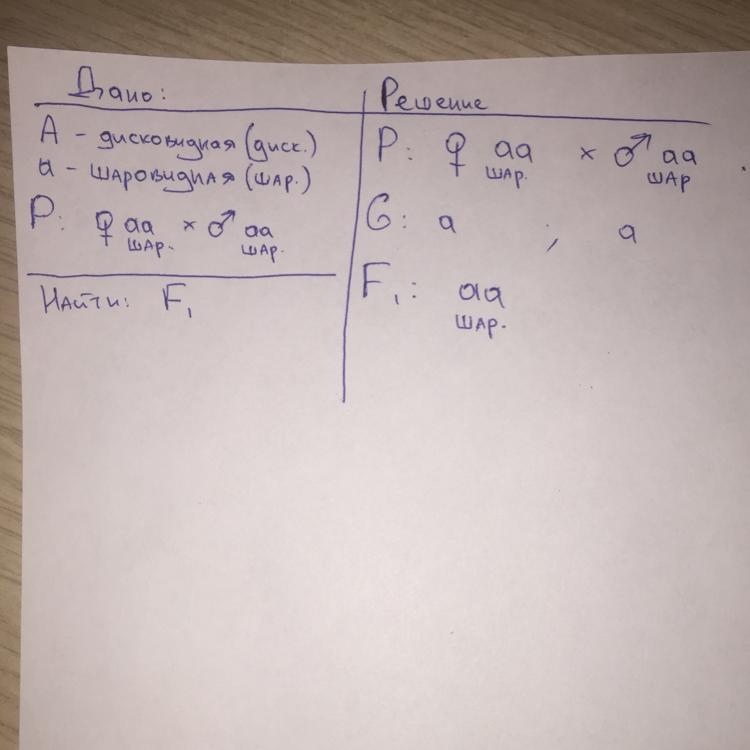 Дано:
А - дисковидная (диск.)
а - шаровидная (шар.)
P: ♀ aa × ♂ aa
шар. шар.
Найти: F₁
Решение
P: ♀ aa × ♂ aa
шар. шар
G: a ; a
F₁: aa
шар.